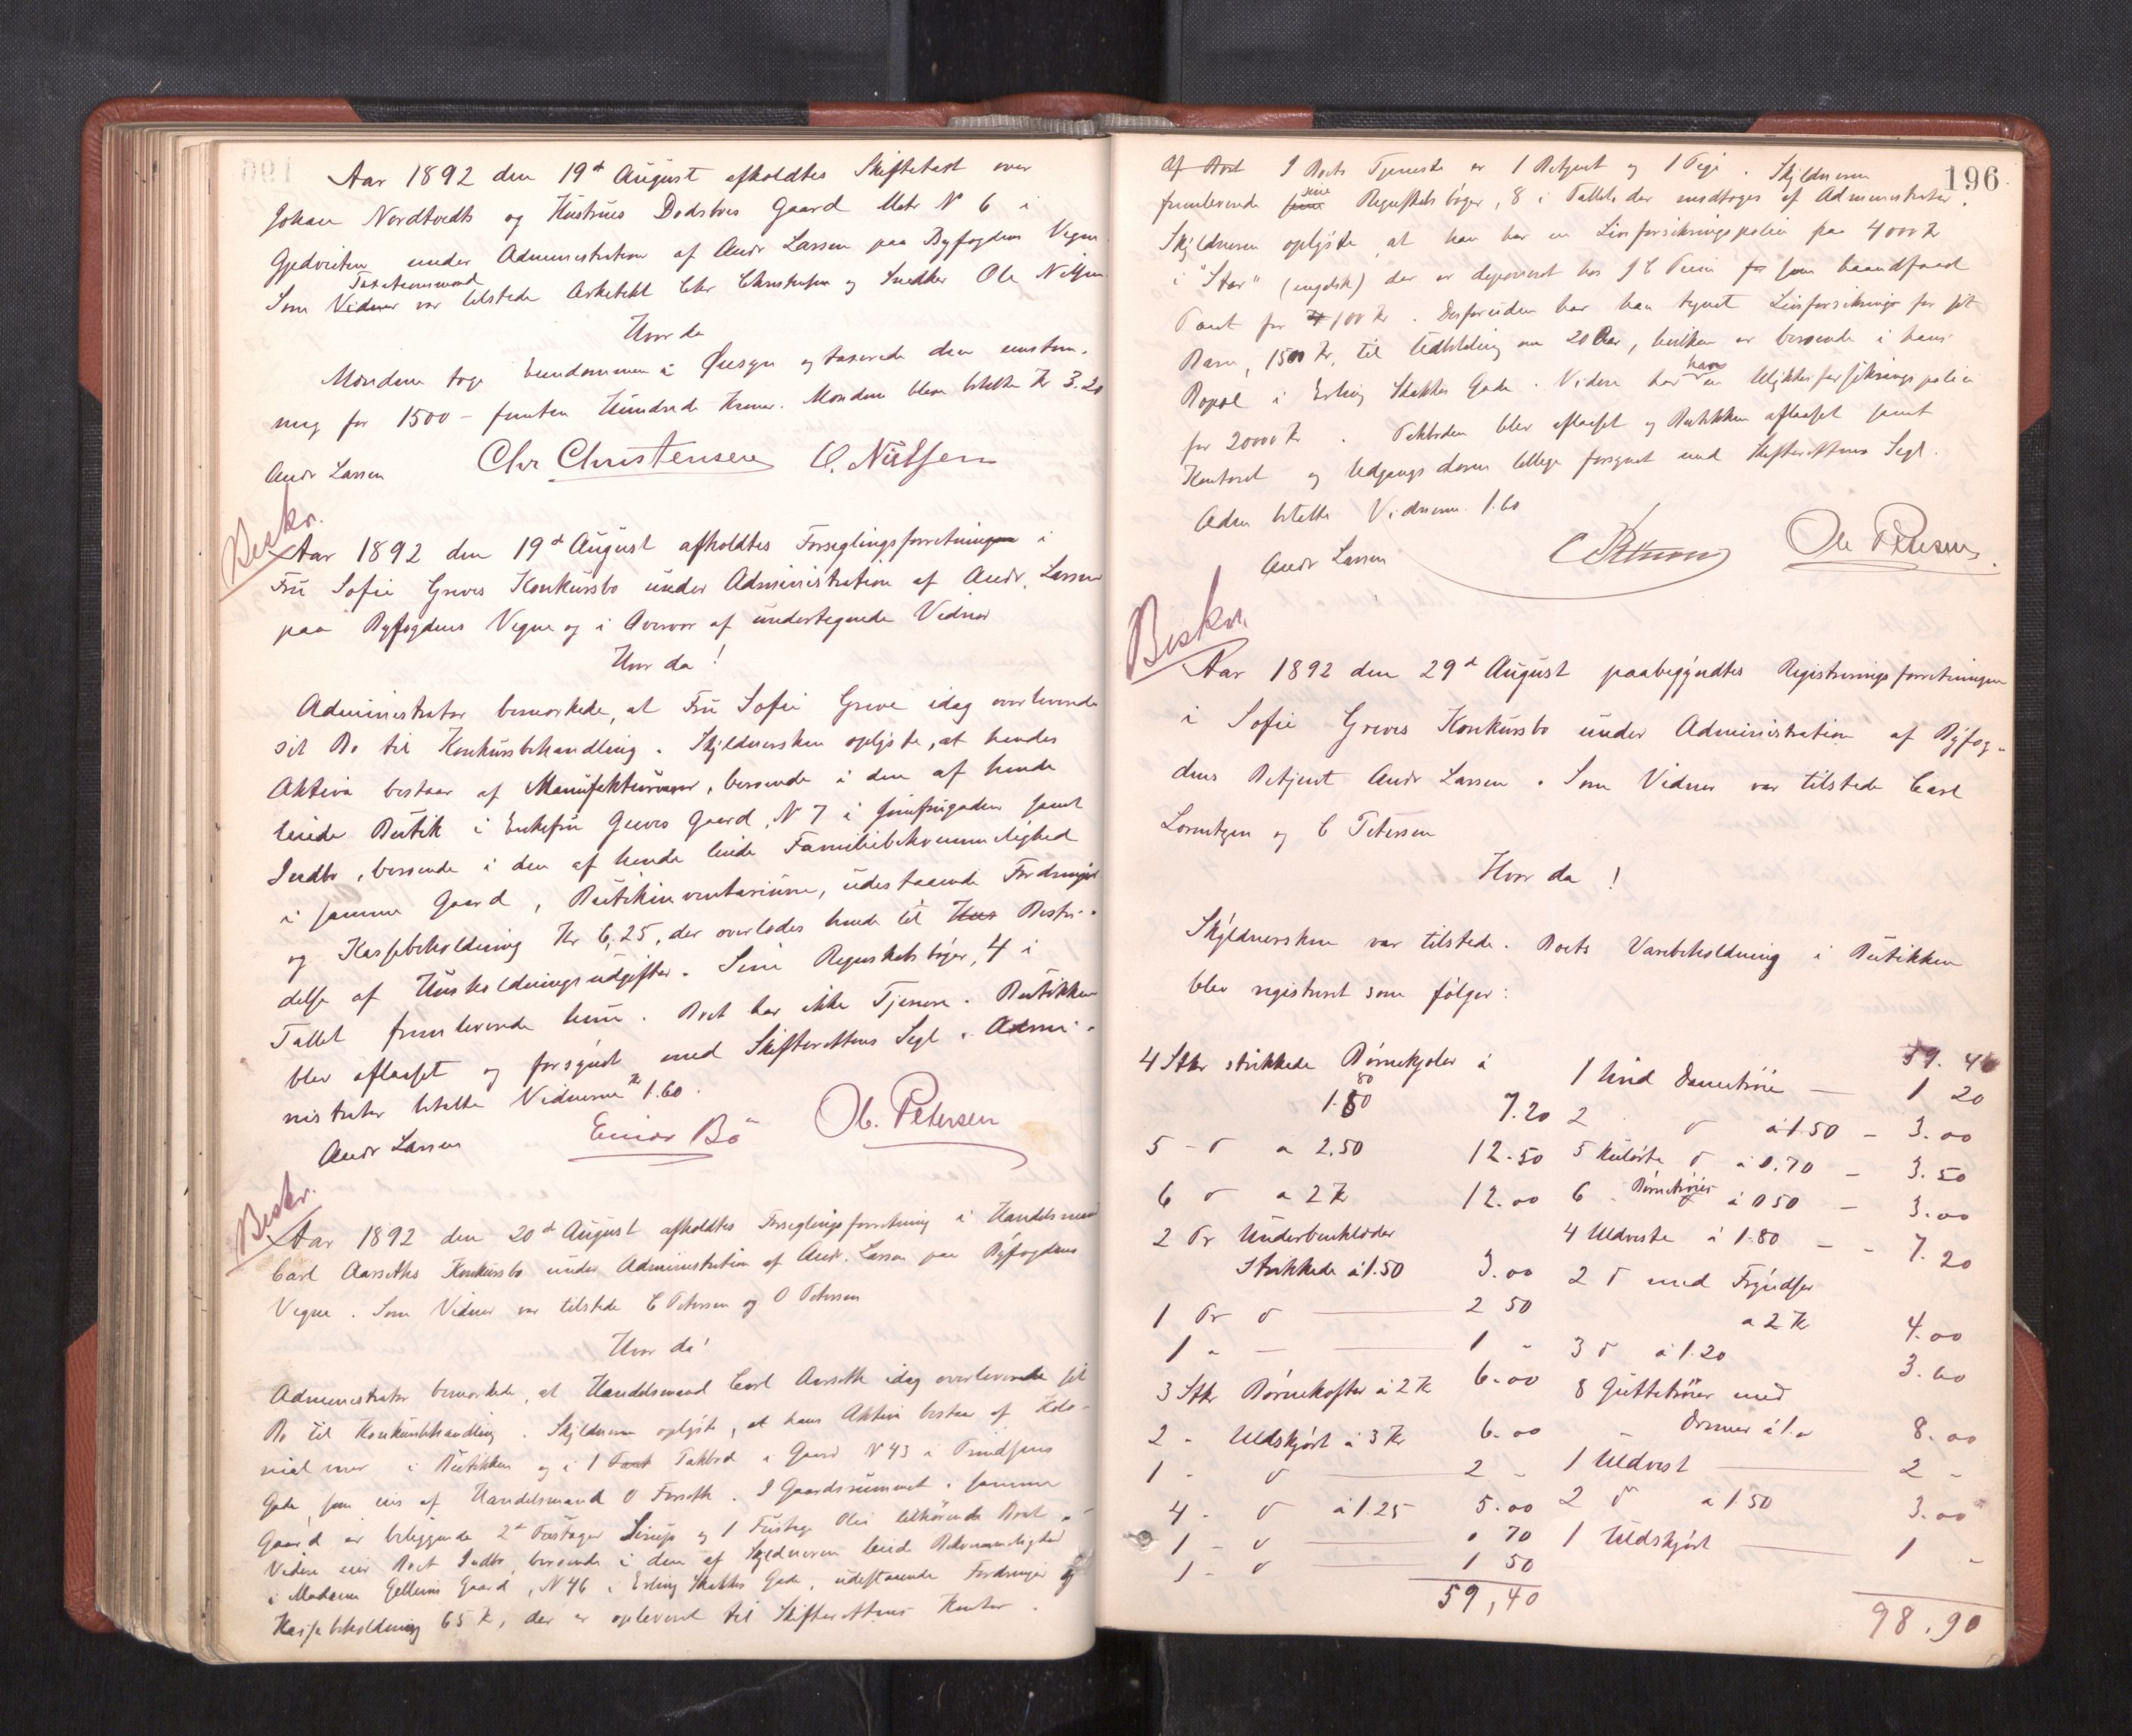 Aar 1892 den 19de August afholdtes Skiftetaxt over
Johan Nordtvedts og Hustrues Dødsboes Gaard Matr N 6 i
Gjedviken under Administration af Andr Larsen paa Byfogdens Vegne.
Taxationsmænd
Som Vidner var tilstede Arkitekt Chr Christensen og Snedker Ole Nilsen
Hvor da
Mændene tog Eiendommen i Øiesyn og taxerede den enstem-
mig for 1500 - femten Hundrede Kroner. Mændene bleve betalte Kr 3.20
Andr Larsen Chr Christensen O. Nielsen
Beskr.
Aar 1892 den 19de August afholdtes Forseglingsforretningen i
Fru Sofie Greves Konkursbo under Administration af Andr. Larsen
paa Byfogdens Vegne og i Overvær af undertegnede Vidner
Hvor da!
Administrator bemærkede, at Fru Sofie Greve idag overleverede
sit Bo til Konkursbehandling. Skyldnersken oplyste, at hendes
Aktiva bestaar af Manufakturvarer, beroende i den af hende
leiede Butik i Enkefru Greves Gaard, N 7 i Jomfrugaden samt
Indbo, beroende i den af hende leiede Familiebekvemmelighed
i samme Gaard, Butikinventarium, udestaaende Fordringer
og Kassebeholdning Kr 6,25, der overlodes hende til Hus Bestri-
delse af Husholdningsudgifter. Sine Regnskabsbøger, 4 i
Tallet fremleverede hun. Boet har ikke Tjenere. Butikken
blev aflaaset og forsynet med Skifterettens Segl. Admi-
nistrator betalte Vidnerne Kr 1.60.
Andr Larsen Einar Bø Ol. Petersen
Beskr.
Aar 1892 den 20de August afholdtes Forseglingsforretning i Handelsmand
Carl Aarseths Konkursbo under Administration af Andr. Larsen paa Byfogdens
Vegne. Som Vidner var tilstede C Petersen og O Petersen
Hvor da!
Administrator bemærkede, at Handelsmand Carl Aarseth idag overleverede sit
Bo til Konkursbehandling. Skyldneren oplyste, at hans Aktiva bestaar af Kolo-
nialvarer i Butikken og i 1 Pakbod i Gaard N 43 i
Gade, som eies af Handelsmand O Forseth. I Gaardsrummet i samme
Gaard er beliggende 2de Fustager Sirup og 1 Fustage Olie tilhørende Boet.
Videre eier Boet Indbo, beroende i den af Skyldneren leiede Bekvemmelighed
i Madam Gaard, N 46 i Erling Skakkes Gade, udestaaende Fordringer og
Kassebeholdning 65 Kr, der er opleveret til Skifterettens Kontor.
196.
Af Boet I Boets Tjeneste er 1 Betjent og 1 Pige. Skyldneren
fremleverede sine Regnskabsbøger, 8 i Tallet, der modtoges af Administrator.
Skyldneren oplyste at han har en Livsforsikringspolice paa 4000 Kr
i "Star" (engelsk) der er deponeret hos som haandfaaet
Pant for 100 Kr. Desforuden har han tegnet Livsforsikring for sit
Barn, 1500 Kr, til Udbetaling om 20 Aar, hvilken er beroende i hans
Bopæl i Erling Skakkes Gade. Videre har han en Ulykkesforsikringspolice
for 20000 Kr. Pakboden blev aflaaset og Butikken aflaaset samt
Kontoret og Udgangsdøren tillige forsynet med Skifterettens Segl.
Adm betalte Vidnerne 1.60
Andr Larsen C Petersen Ole Petersen.
Beskr.
Aar 1892 den 29de August paabegyndtes Registreringsforretningen
i Sofie Greves Konkursbo under Administration af Byfog-
dens Betjent Andr Larsen. Som Vidner var tilstede Carl
Lorentzen og C Petersen
Hvor da!
Skyldnersken var tilstede. Boets Varebeholdning i Butikken
blev registreret som følger:
4 Stkr strikkede Børnekjoler à
1.80 7.20
5 - d a 2.50 12.50
6 d a 2 Kr 12.00
2 Pr Underbenklæder
Strikkede à 1.50 3.00
1 Pr d 2 50
1 " - 1 "
3 Stkr Børnekofter à 2 Kr 6.00
2 - Uldskjørt à 3 Kr 6.00
1 - d 2 -
4 - d à 1.25 5.00
1 - d 0 70
1 - d 1 50
59,40
59.40
1 hvid Dametrøie - 1 20
2 d à 1.50 - 3.00
5 kulørte d à 0.70 - 3.50
6 - Børnetrøier à 0 50 - 3.00
4 Uldveste à 1.80 - - 7.20
2 d med Fryndser
a 2 Kr 4.00
3 d à 1.20 3.60
8 Guttetrøier med
Ærmer à 1.- 8.00
1 Uldvest 2 -
2 d à 1.50 3.00
1 Uldskjørt 1 -
98.90